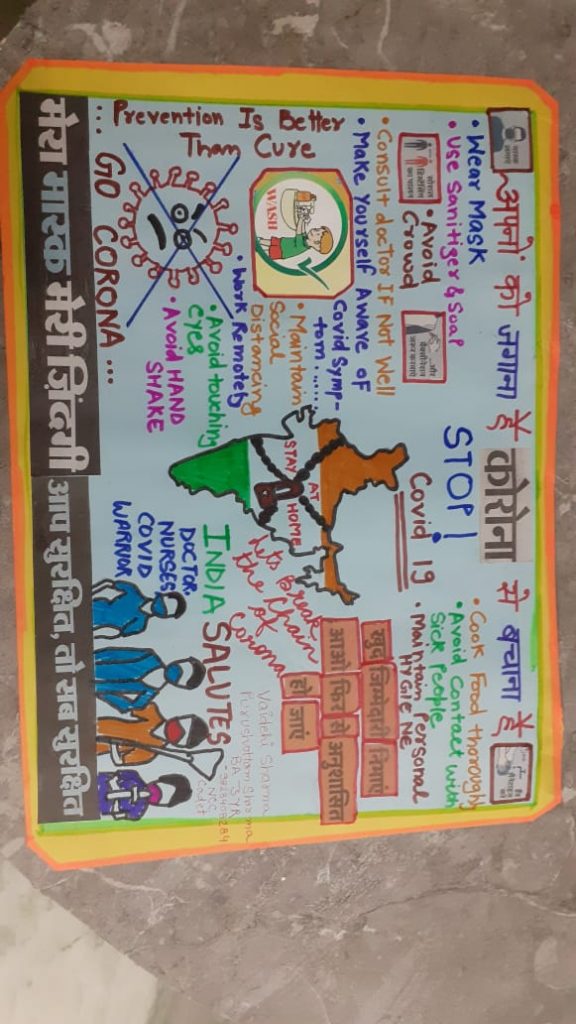 अपनों को जगाना है कोरोना से बचाना है
• Wear Mask
• Use Sanitiger & Soap
• Avoid
Crowd
• Consult doctor If Not Well
• Make Yourself Aware of
Covid Symp-
tom......
• Maintain
Social
Distancing
• Work Remotely
• Avoid touching
eyes
• Avoid HAND
SHAKE
Prevention Is Better
Than Cure
WASH
... GO CORONA ...
STOP!
Covid 19
STAY AT
HOME
Let's Break
the Chain
of
Corona
• Cook Food thoroughly
• Avoid Contact with
Sick People
• Maintain Personal
HYGIENE
खुद जिम्मेदारी निभाएं
आओ फिर से अनुशासित
हो जाएं
INDIA SALUTES
DOCTOR,
NURSES
COVID
WARRIOR
Vaidehi Sharma
Purushottam Sharma
BA 3 YR
NCC
Cadet
मेरा मास्क मेरी ज़िंदगी आप सुरक्षित, तो सब सुरक्षित